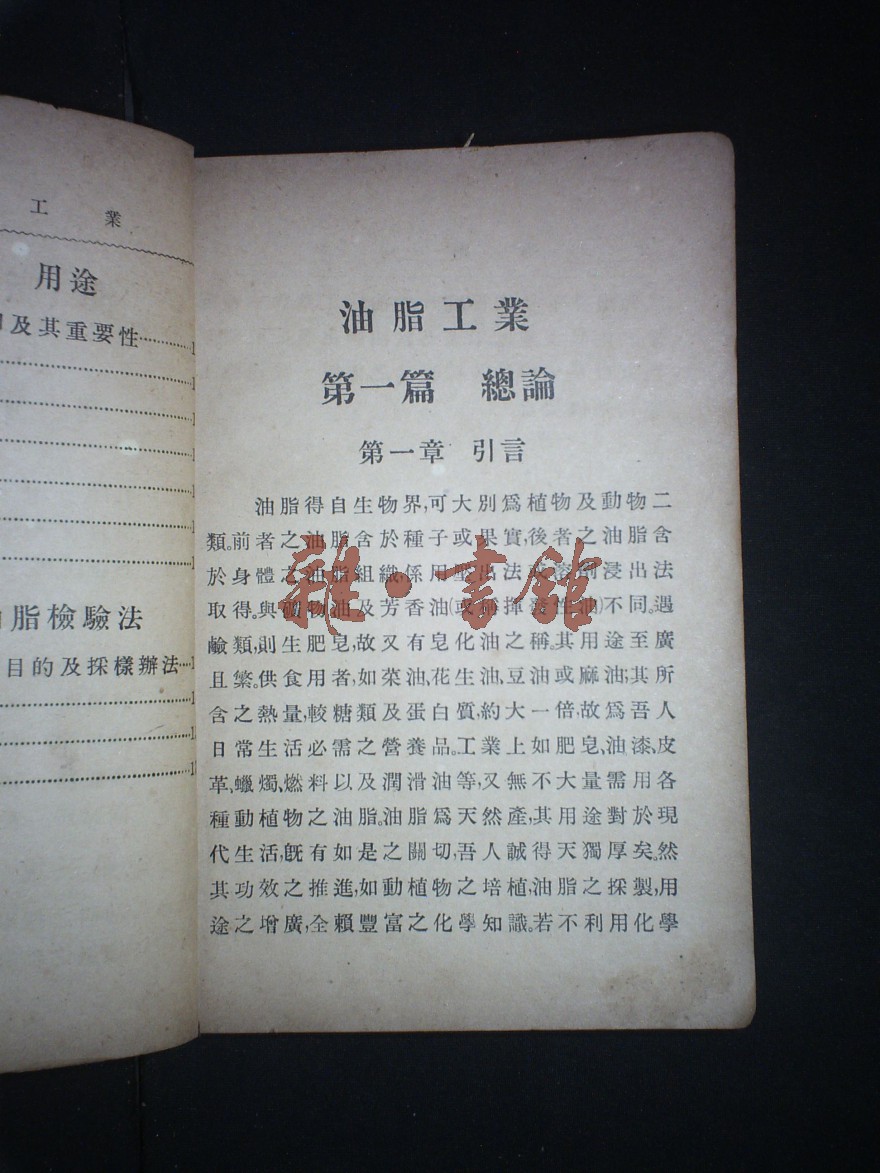 工 業
用途
及其重要性
脂檢驗法
目的及採樣辦法
油脂工業
第一篇 總論
第一章 引言
油脂得自生物界,可大別爲植物及動物二
類。前者之油脂含於種子或果實,後者之油脂含
於身體之油脂組織,係用壓出法或溶劑浸出法
取得。與礦物油及芳香油(或稱揮發性油)不同。遇
鹼類,則生肥皂,故又有皂化油之稱。其用途至廣
且繁。供食用者,如菜油,花生油,豆油或麻油;其所
含之熱量,較糖類及蛋白質,約大一倍,故爲吾人
日常生活必需之營養品。工業上如肥皂、油漆、皮
革、蠟燭、燃料以及潤滑油等,又無不大量需用各
種動植物之油脂。油脂爲天然產,其用途對於現
代生活,旣有如是之關切,吾人誠得天獨厚矣。然
其功效之推進,如動植物之培植,油脂之採製,用
途之增廣,全賴豐富之化學知識。若不利用化學
雅·書館